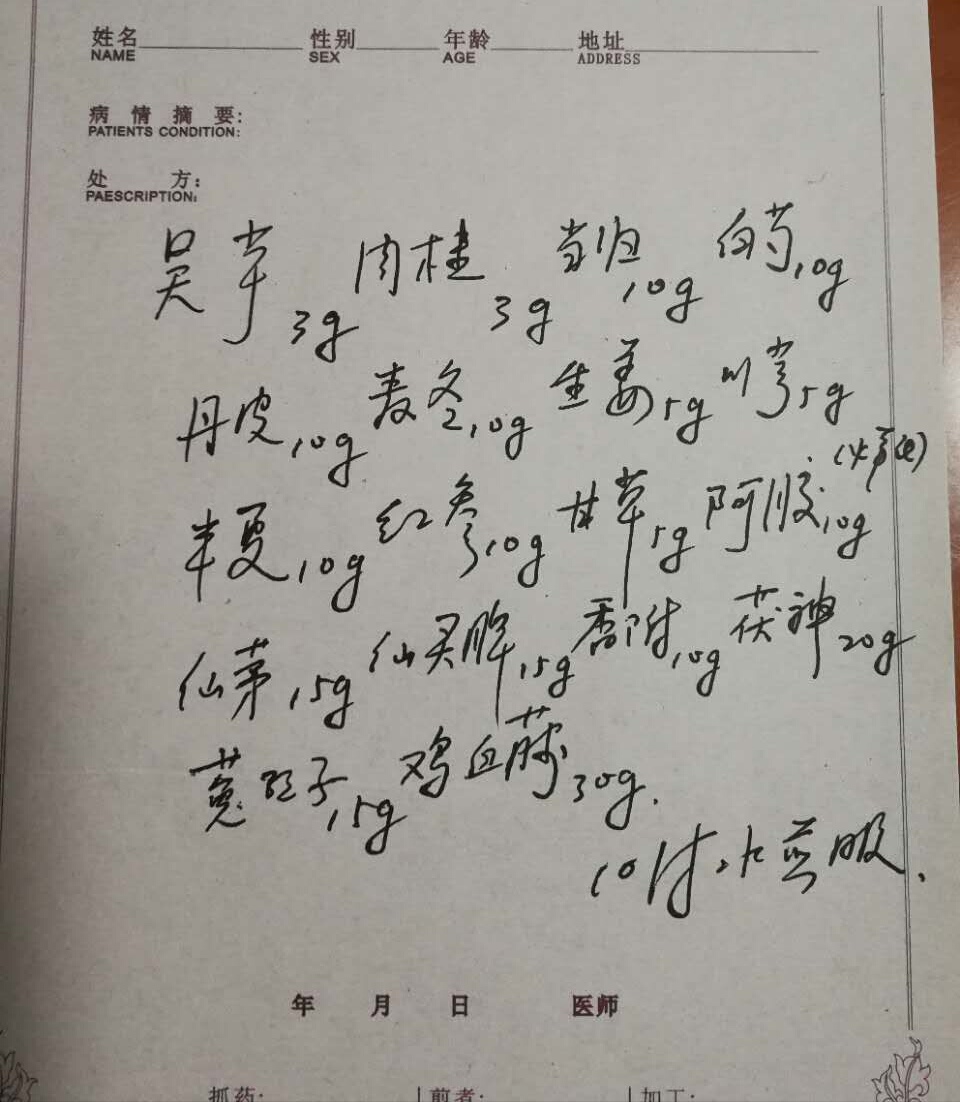 姓名 性别 年龄 地址
NAME SEX AGE ADDRESS
病情摘要:
PATIENTS CONDITION:
处方:
PAESCRIPTION:
吴芋3g 肉桂3g 当归10g 白芍10g
丹皮10g 麦冬10g 生姜5g 川芎5g
半夏10g 红参10g 甘草5g 阿胶10g
仙茅15g 仙灵脾15g 香附10g 茯神20g
菟丝子15g 鸡血藤30g.
10付 水煎服.
年 月 日 医师
抓药: 煎者: 加工: